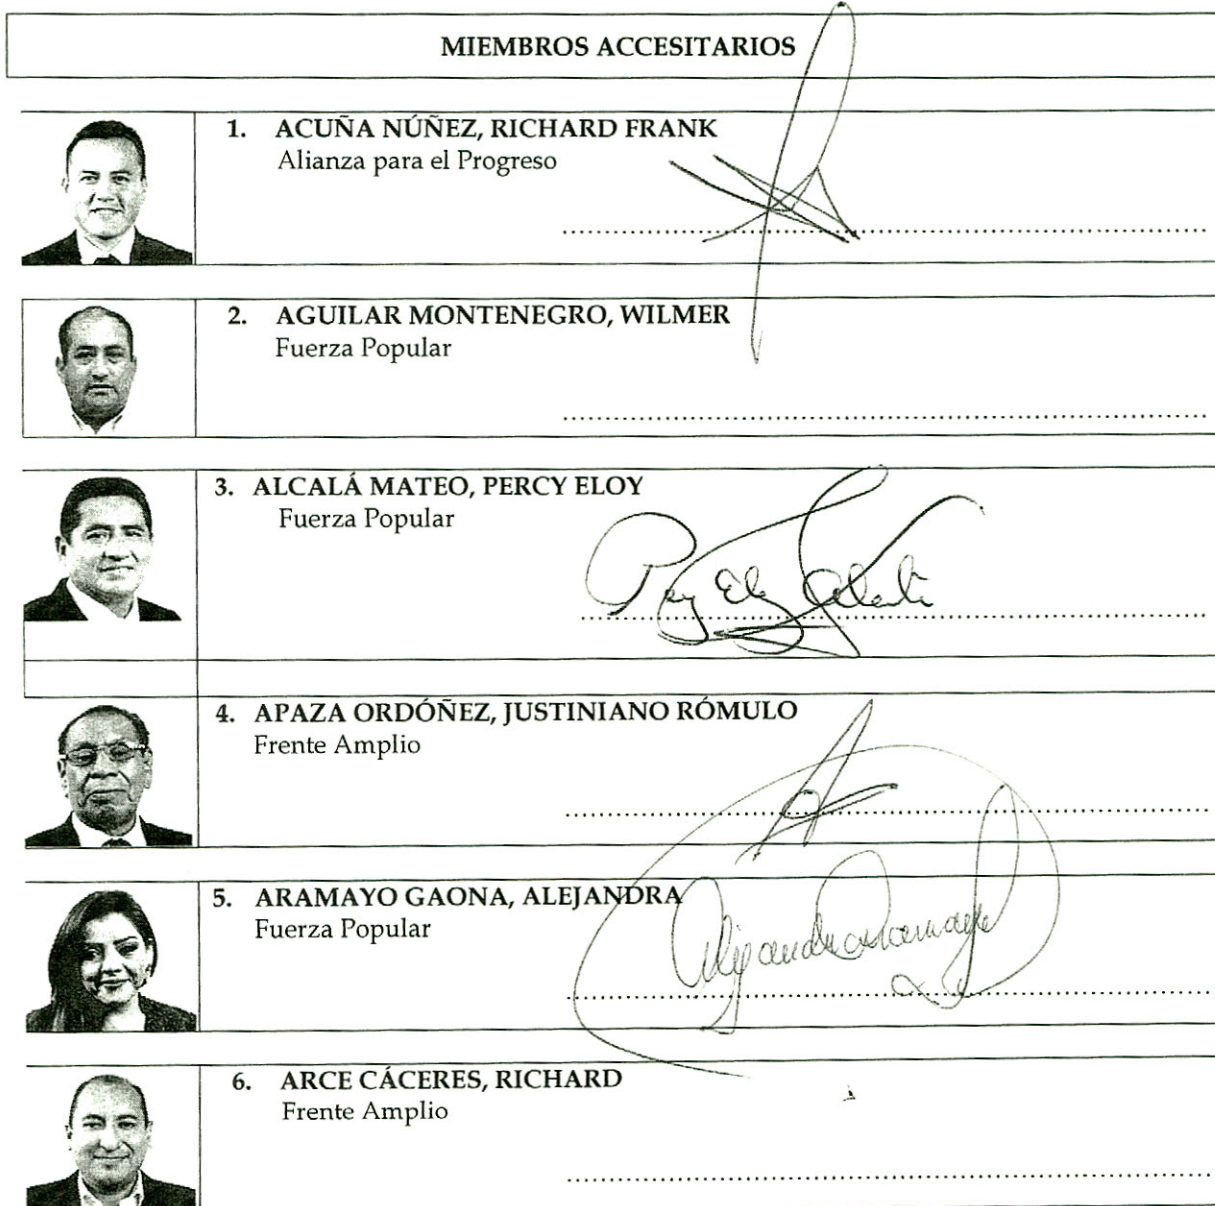 MIEMBROS ACCESITARIOS
1. ACUÑA NÚÑEZ, RICHARD FRANK
Alianza para el Progreso
2. AGUILAR MONTENEGRO, WILMER
Fuerza Popular
3. ALCALÁ MATEO, PERCY ELOY
Fuerza Popular
4. APAZA ORDÓÑEZ, JUSTINIANO RÓMULO
Frente Amplio
5. ARAMAYO GAONA, ALEJANDRA
Fuerza Popular
Alejandra Aramayo
6. ARCE CÁCERES, RICHARD
Frente Amplio